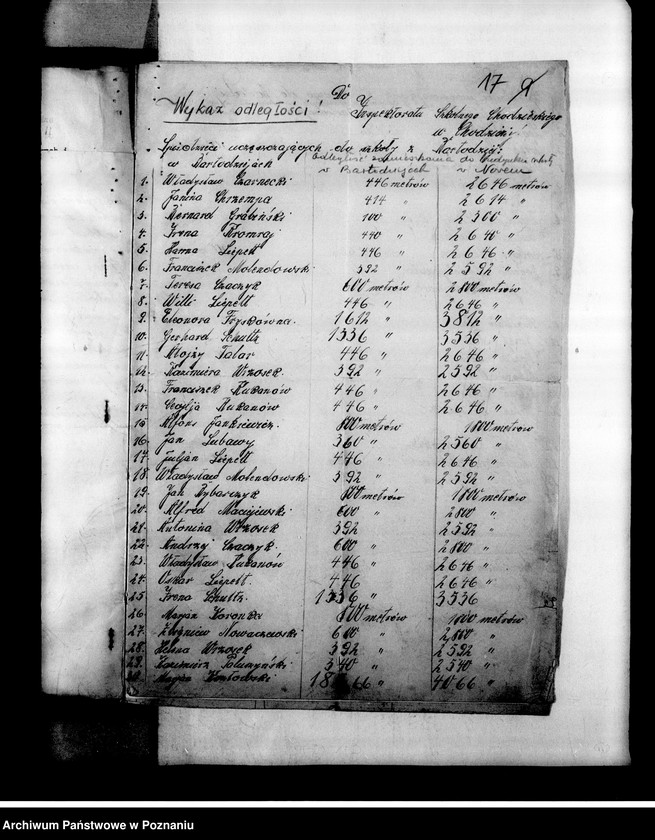 17
Do
Wykaz odległości! Inspektoratu Szkolnego Chodzieskiego
w Chodzieży
uczęszczających do szkoły z
w odległość zamieszkania do budynku szkoły
w w
1. Władysław Czarnecki 446 metrów 2646 metrów
2. Janina Chrzempa 414 " 2614 "
3. Bernard Grabiński 100 " 2300 "
4. Irena 440 " 2640 "
5. Hanna Liepelt 446 " 2646 "
6. Franciszek Molendowski 392 " 2592 "
7. Teresa Czaczyk 600 metrów 2800 metrów
8. Willi Liepelt 446 " 2646 "
9. Eleonora 1612 " 3812 "
10. Gerhard Schultz 1336 " 3536 "
11. Alojzy Talar 446 " 2646 "
12. Kazimiera Wrzosek 392 " 2592 "
13. Franciszek 446 " 2646 "
14. Cecylja 446 " 2646 "
15. Alfons Jankiewicz 800 metrów 1800 metrów
16. Jan Lubawy 360 " 2560 "
17. Juljan Liepelt 446 " 2646 "
18. Władysław Molendowski 392 " 2592 "
19. Jan Rybarczyk 800 metrów 1800 metrów
20. Alfred Maciejewski 600 " 2800 "
21. Antonina Wrzosek 392 2592 "
22. Andrzej Czaczyk 600 " 2800 "
23. Władysław 446 " 2646 "
24. Oskar Liepelt 446 " 2646 "
25. Irena Schultz 1336 " 3536
26. Marjan 800 metrów 1800 metrów
27. Zbigniew Nowaczewski 600 " 2800 "
28. Helena Wrzosek 392 " 2592 "
29. Kazimierz 340 " 2540 "
30. Marjan Kozłowski 1866 " 4066 "
Archiwum Państwowe w Poznaniu